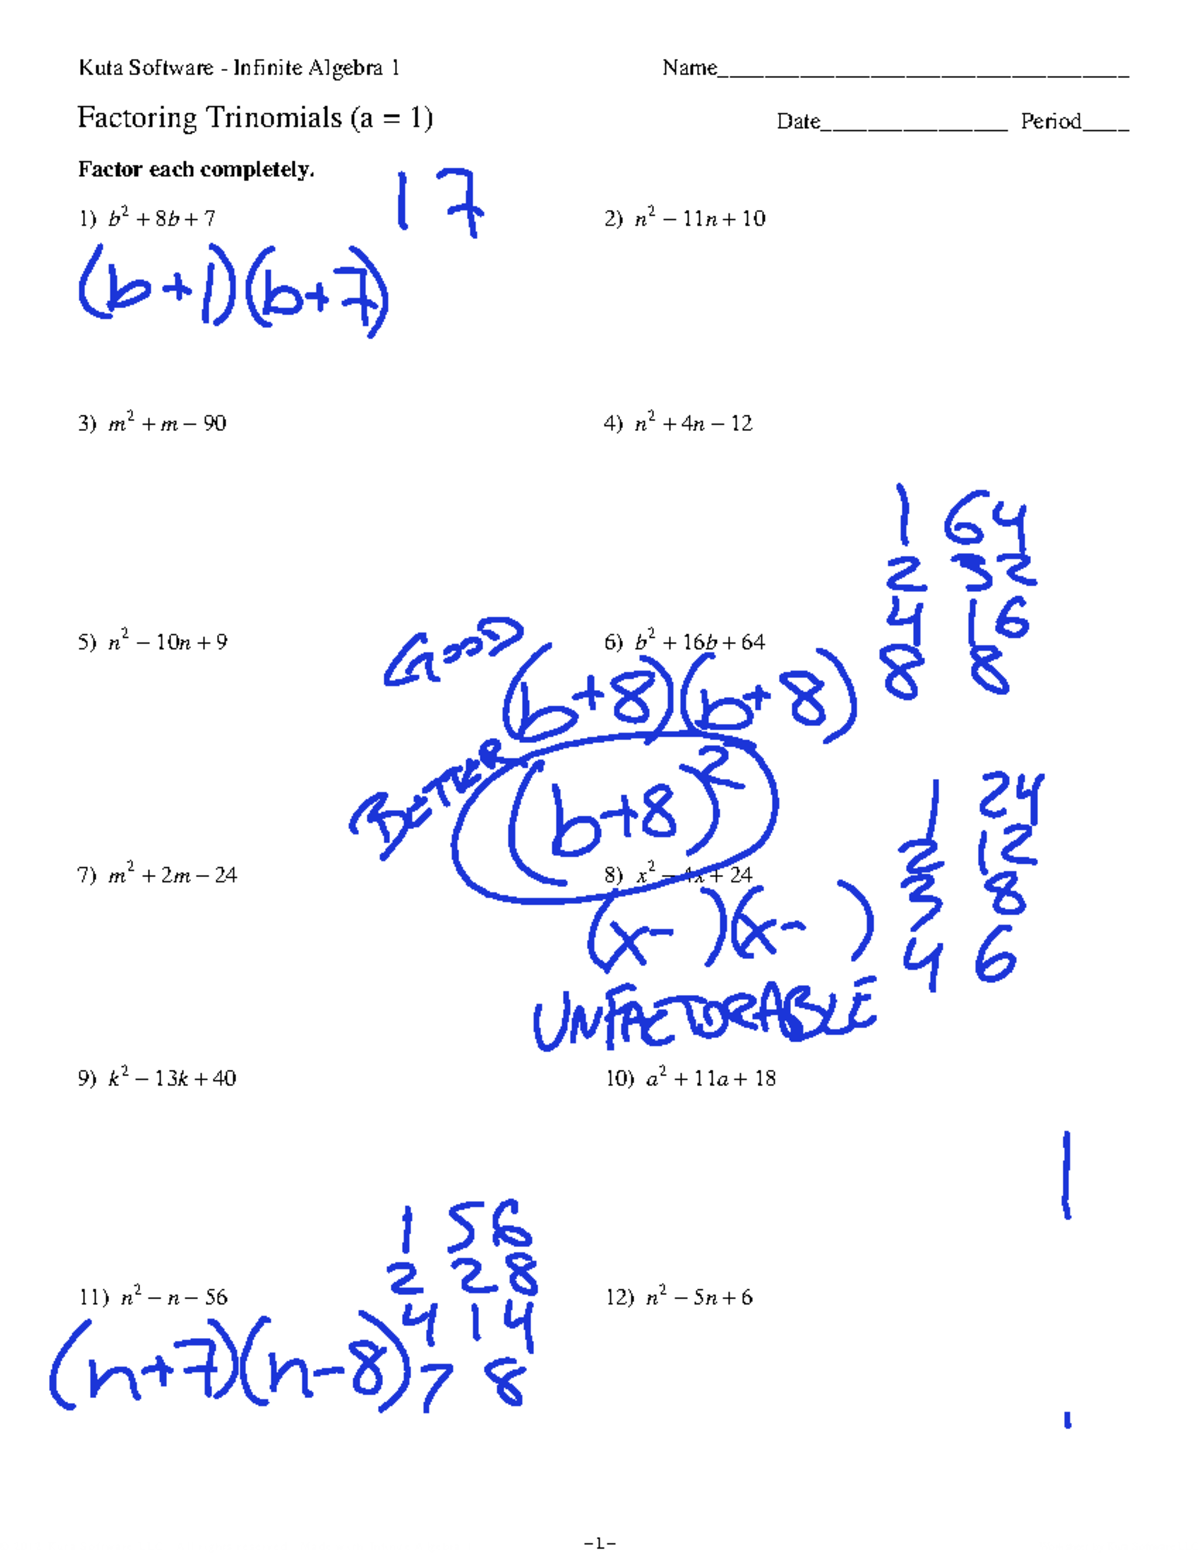 Kuta Software - Infinite Algebra 1 Name___________________________________
Factoring Trinomials (a = 1) Date________________ Period____
Factor each completely.
1 7
1) b² + 8b + 7 2) n² − 11n + 10
(b+1)(b+7)
3) m² + m − 90 4) n² + 4n − 12
1 64
2 32
4 16
8 8
5) n² − 10n + 9 6) b² + 16b + 64
GOOD (b+8)(b+8)
BETTER (b+8)²
1 24
2 12
3 8
4 6
7) m² + 2m − 24 8) x² − 4x + 24
(x− )(x− )
UNFACTORABLE
9) k² − 13k + 40 10) a² + 11a + 18
1
1 56
2 28
4 14
7 8
11) n² − n − 56 12) n² − 5n + 6
(n+7)(n−8)
-1-